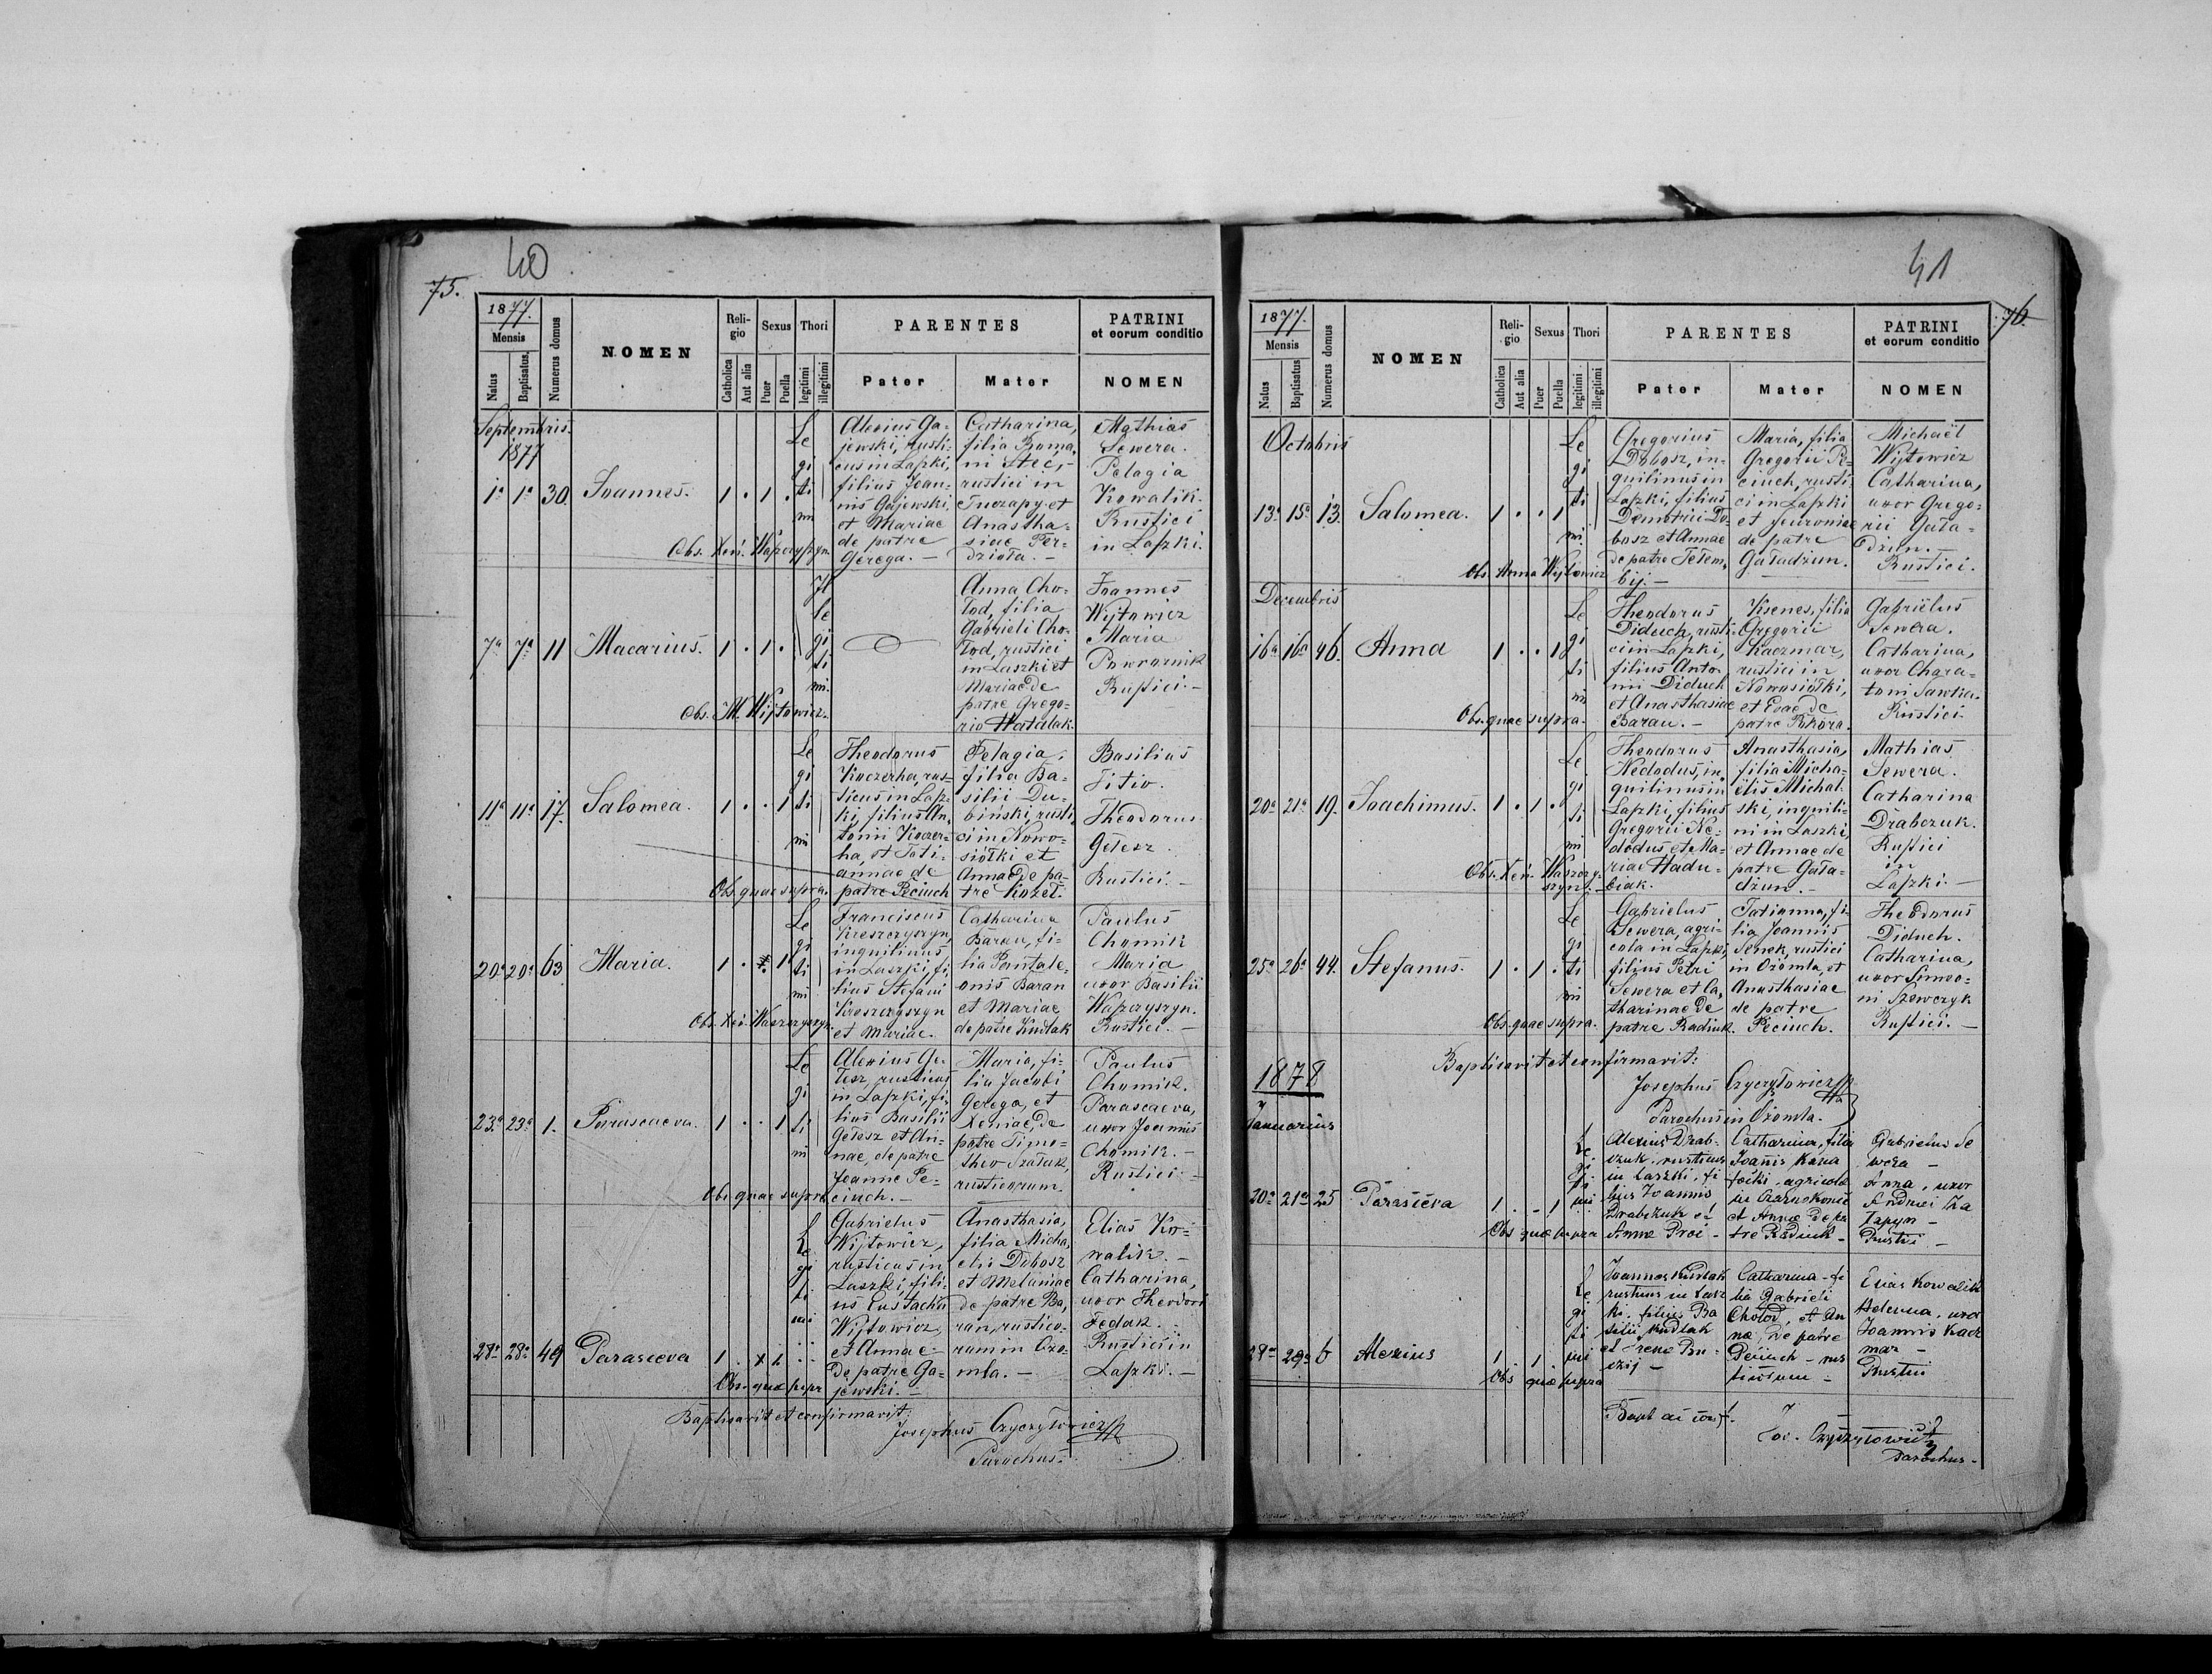 75.
40
1877.
Mensis
Natus
Baptisatus
Numerus domus
NOMEN
Religio
Catholica
Aut alia
Sexus
Puer
Puella
Thori
legitimi
illegitimi
PARENTES
Pater
Mater
PATRINI
et eorum conditio
NOMEN
Septembris
1877
1a 1a 30 Joannes. 1 . 1 . Legitimi
Alexius Ga-
jewski, rusti-
cus in Laszki,
filius Joan-
nis Gajewski,
et Mariae
de patre
Gerega. —
Catharina,
filia Roma-
ni Stec, -
rustici in
Tuczapy et
Anastha-
siae Per-
dzioła. —
Mathias
Sewera.
Pelagia
Kowalik.
Rustici
in Laszki.
Obs. Xen. Waszczyszyn.
7a 7a 11 Macarius. 1 . 1 . Illegitimi.
Anna Cho-
łod, filia
Gabrieli Cho-
łod, rustici
in Laszki et
Mariae de
patre Grego-
rio Hatalak.
Joannes
Wijtowicz
Maria
Powroznik
Rustici. —
Obs. M. Wijtowicz.
11a 11a 17. Salomea. 1 . . 1 Legitimi
Theodorus
Koczerha, rus-
ticus in Lasz-
ki, filius An-
tonii Koczer-
ha, et Tati-
annae de
patre Peciuch
Pelagia,
filia Ba-
silii Du-
binski, rusti-
ci in Nowo-
siółki et
Annae de pa-
tre Kozeł.
Basilius
Titio.
Theodorus
Gelesz.
Rustici. —
Obs. quae supra.
20a 20a 63 Maria. 1 . . 1 Legitimi
Franciscus
Kreszczyszyn,
inquilinus
in Laszki, fi-
lius Stefani
Kreszczyszyn
et Mariae.
Catharina
Baran, fi-
lia Pantale-
onis Baran
et Mariae
de patre Kudlak
Paulus
Chomik
Maria
uxor Basilii
Waszczyszyn.
Rustici. —
Obs. Xen. Waszczyszyn.
23a 23a 1. Parasceva. 1 . . 1 Legitimi
Alexius Ge-
lesz, rusticus
in Laszki, fi-
lius Basilii
Gelesz et An-
nae, de patre
Joanne Pe-
ciuch. —
Maria, fi-
lia Jacobi
Gerega, et
Xeniae, de
patre Timo-
theo Szałuk,
rusticorum.
Paulus
Chomik.
Parasceva,
uxor Joannis
Chomik. —
Rustici —
Obs. quae supra
28a 28a 49 Parasceva 1 . x 1 Legitimi
Gabrielus
Wijtowicz,
rusticus in
Laszki, fili-
us Eustachii
Wijtowicz,
et Annae
de patre Ga-
jewski. —
Anasthasia,
filia Micha-
elis Dobosz
et Melaniae
de patre Ba-
ran, rustico-
rum in Ożo-
mla. —
Elias Ko-
walik. —
Catharina,
uxor Theodori
Fedak. —
Rustici in
Laszki. —
Obs. quae supr
Baptisavit et confirmavit:
Josephus Czyczyłowicz
Parochus.
41
76.
1877.
Mensis
Natus
Baptisatus
Numerus domus
NOMEN
Religio
Catholica
Aut alia
Sexus
Puer
Puella
Thori
legitimi
illegitimi
PARENTES
Pater
Mater
PATRINI
et eorum conditio
NOMEN
Octobris
13a 15a 13. Salomea. 1 . . 1 Legitimi.
Gregorius
Dobosz, in-
quilinus in
Laszki, filius
Demetrii Do-
bosz et Annae
de patre Tetem-
bij. —
Maria, filia
Gregorii Pe-
ciuch, rusti-
ci in Laszki
et Feuroniae
de patre
Gaładzun.
Michaël
Wijtowicz
Catharina,
uxor Grego-
rii Gała-
dzun. —
Rustici.
Obs. Anna Wijtowicz
Decembris
16a 16a 46. Anna 1 . . 1 Legitimi
Theodorus
Diduch, rusti-
ci in Laszki,
filius Anto-
nii Diduch
et Anasthasiae
Baran. —
Ksenes, filia
Gregorii
Kaczmar,
rustici in
Nowosiółki,
et Evae de
patre Pokora.
Gabriëlus
Sewera.
Catharina,
uxor Chara-
toni Sawka.
Rustici.
Obs. quae supra.
20a 21a 19. Joachimus. 1 . 1 . Legitimi
Theodorus
Nedodus, in-
quilinus in
Laszki, filius
Gregorii Ne-
dodus et Ma-
riae Hadu-
biak.
Anasthasia,
filia Micha-
ëlis Michal-
ski, inquili-
ni in Laszki,
et Annae de
patre Gała-
dzun. —
Mathias
Sewera.
Catharina
Drabczuk.
Rustici
in
Laszki. —
Obs. Xen. Waszczy-
szyn. —
25a 26a 44. Stefanus. 1 . 1 . Legitimi
Gabrielus
Sewera, agri-
cola in Laszki,
filius Petri
Sewera et Ca-
tharinae de
patre Radiuk.
Tatianna, fi-
lia Joannis
Senek, rustici
in Ożomla, et
Anasthasiae
de patre
Peciuch.
Theodorus
Diduch.
Catharina,
uxor Simeo-
ni Szewczyk
Rustici. —
Obs. quae supra.
Baptisavit et confirmavit:
Josephus Czyczyłowicz
Parochus in Ożomla.
1878
Januarius
20a 21a 25 Parasceva 1 . . 1 Legitimi
Alexius Drab-
czuk, rusticus
in Laszki, fi-
lius Joannis
Drabczuk et
Annae Proi-
Catharina, filia
Joannis
agricola
et Annae de pa-
tre Radiuk -
Gabrielus Se
wera —
Anna, uxor
Andreei
Rustici —
Obs quae supra
29a 29a 6 Alexius 1 . 1 . Legitimi
Joannes Kudlak
rusticus in Lasz
ki, filius Ba
silii Kudlak
et Irene
Catharina - fi
lia Gabrieli
Chołod, et An
nae, de patre
Peciuch - rus
ticorum -
Elias Kowalik
uxor
Joannis Kacz
mar —
Rustici
Obs quae supra
Bapt ac conf.
Jos. Czyczyłowicz
Parochus-